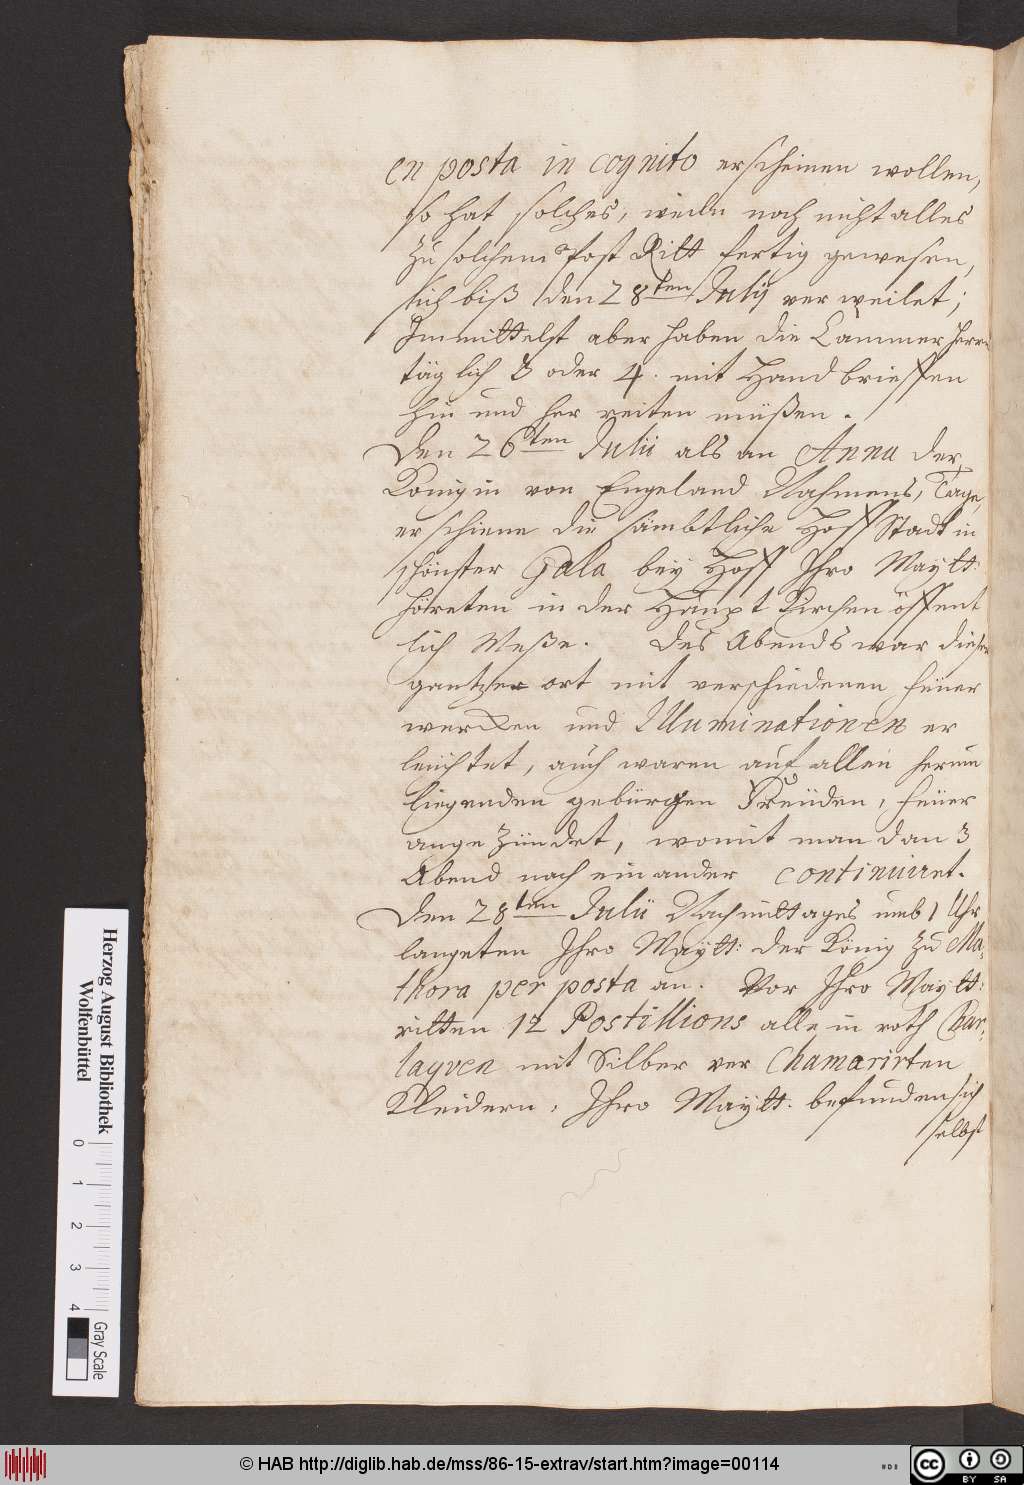 en posta in cognito erscheinen wollen,
so hat solches, weiln noch nicht alles
zu solchem Post Ritt fertig gewesen,
sich biß den 28ten Julij verweilet;
Immittelst aber haben die Cammer Herrn
täglich 3 oder 4. mit Hand brieffen
hin und her reiten müßen.
Den 26ten Julii als an Anna der
Königin von Engeland Nahmens, Tage,
erschiene die sämbtliche Hoff Stadt in
schönster Gala bey Hoff Ihro Maytt:
höreten in der Haupt Kirchen öffent
lich Meße. Des Abends war dieser
gantzer ort mit verschiedenen feüer
wercken und Illuminationen er
leüchtet, auch waren auf allen herum
liegenden gebürgen Freüden, feüer
angezündet, womit man dan 3
Abend nach ein ander continuiret.
Den 28ten Julii Nachmittages umb 1 Uhr
langeten Ihro Maytt: der König zu Ma,
thora per posta an. Vor Ihro Maytt:
ritten 12 Postillions alle in roth Char,
layven mit Silber ver Chamarirten
Kleidern, Ihro Maytt. befunden sich
selbst
Herzog August Bibliothek
Wolfenbüttel
0 1 2 3 4
Gray Scale
© HAB http://diglib.hab.de/mss/86-15-extrav/start.htm?image=00114
cc BY SA